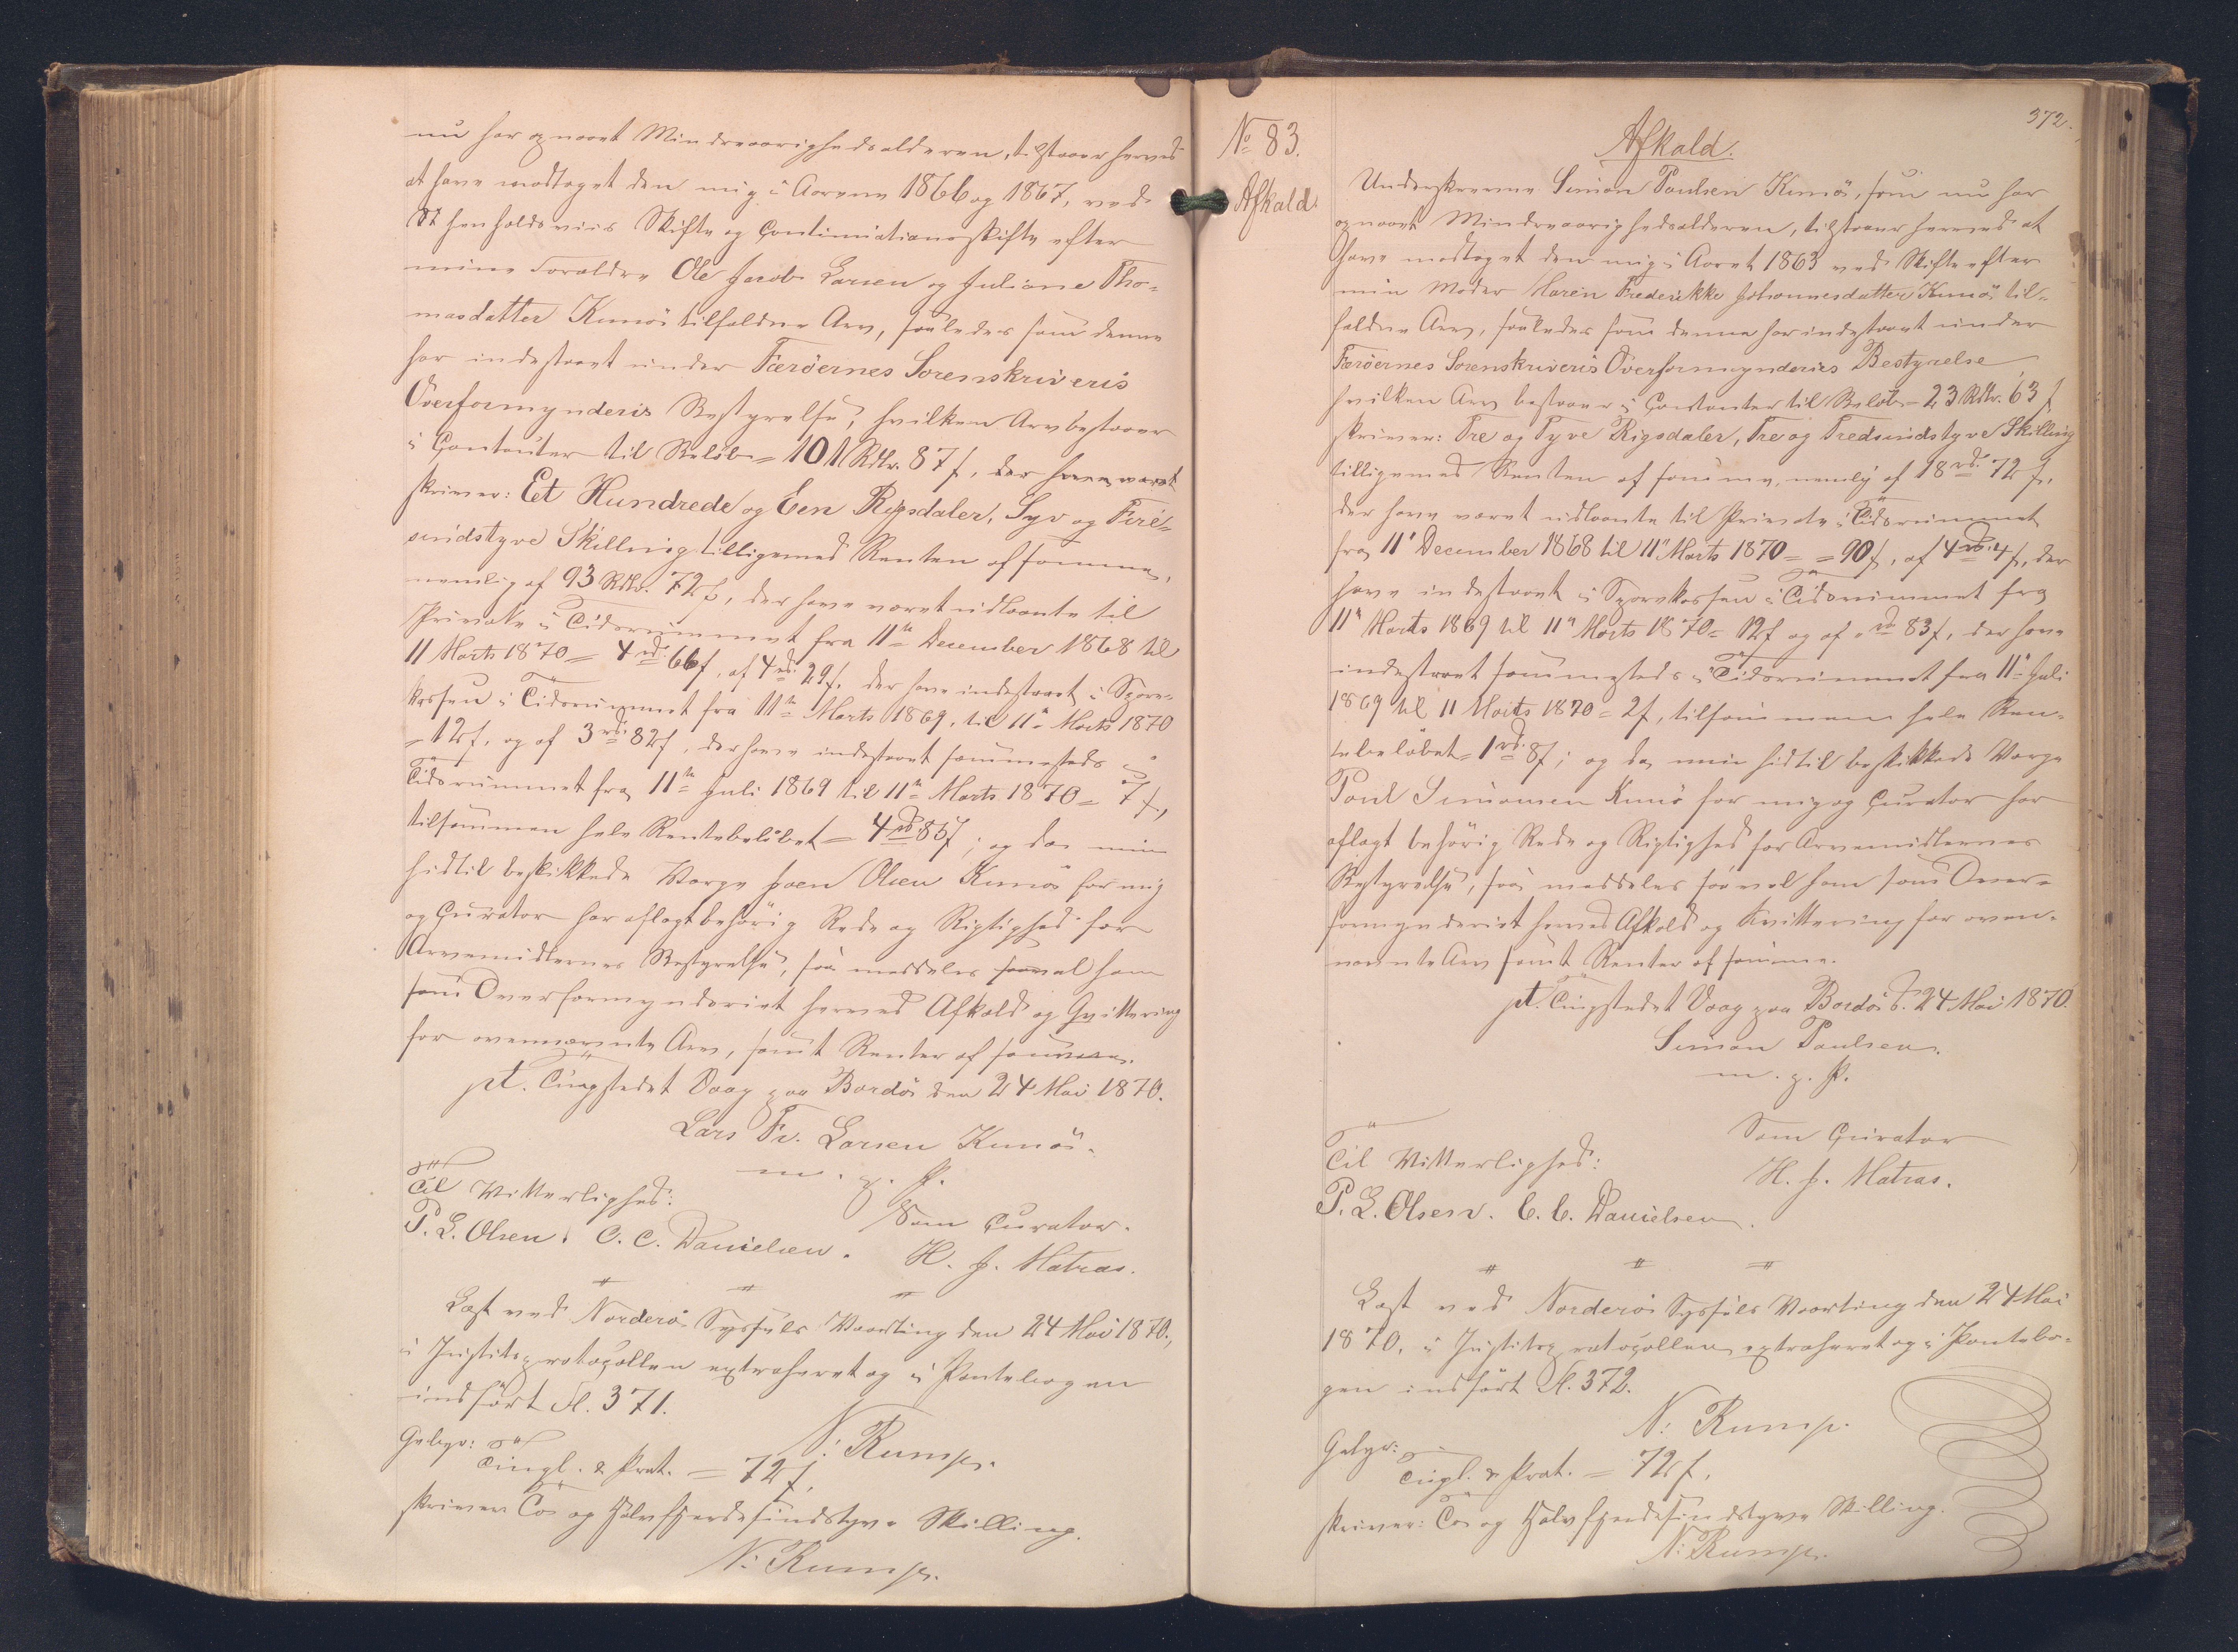 nu har opnaaet Mindreaarighedsalderen, tilstaaer herved
at have modtaget den mig i Aarene 1866 og 1867, ved
henholdsviis Skifte og Continuationsskifte efter
mine Forældre Ole Jacob Larsen og Juliane Tho-
masdatter Kunö tilfaldne Arv, saaledes som denne
har indestaaet under Færöernes Sorenskriveris
Overformynderis Bestyrelse, hvilken Arv bestaaer
i Contanter til Beløb = 101 Rdlr. 87 ſ,
skriver: Et Hundrede og Een Rigsdaler, Syv og Fire-
sindstyve Skilling tilligemed Renten af samme,
nemlig af 93 Rdlr. 72 ſ, der have været udlaante til
Private i Tidsrummet fra 11te December 1868 til
11 Marts 1870 = 4 rd. 66 ſ, af 4 rd. 29 ſ, der have indestaaet i Spare-
kassen i Tidsrummet fra 11te Marts 1869, til 11te Marts 1870
= 12 ſ, og af 3 rd. 82 ſ, der have indestaaet sammesteds i
Tidsrummet fra 11te Juli 1869 til 11te Marts 1870 = 7 ſ,
tilsammen hele Rentebeløbet = 4 rd. 85 ſ; og da min
hidtil beskikkede Værge Joen Olsen Kunö for mig
og Curator har aflagt behörig Rede og Rigtighed for
Arvemidlernes Bestyrelse, saa meddeles saavel ham
som Overformynderiet herved Afkald og Qvittering
for ovennævnte Arv, samt Renter af samme.
pt. Tingstedet Vaag paa Bordö den 24 Mai 1870.
Lars Fr. Larsen Kunö.
m. p. P.
Til Vitterlighed:
Som Curator.
P. L. Olsen. C. C. Danielsen. H. J. Matras.
Læst ved Norderö Syssels Vaarting den 24 Mai 1870,
i Justitsprotocollen extraheret og i Pantebogen
indført Fl. 371.
N. Rump.
Gebyr:
Tingl. & Prot. = 72 ſ,
skriver To og Halvfjerdsindstyve Skilling.
N. Rump.
372.
No 83.
Afkald.
Afkald.
Underskrevne Simon Paulsen Kunö, som nu har
opnaaet Mindreaarighedsalderen, tilstaaer herved at
have modtaget den mig i Aaret 1863 ved Skifte efter
min Moder Maren Frederikke Johannesdatter Kunö til-
faldne Arv, saaledes som denne har indestaaet under
Færöernes Sorenskriveris Overformynderies Bestyrelse
hvilken Arv bestaaer i Contanter til Beløb = 23 Rdlr. 63 ſ
skriver: Tre og Tyve Rigsdaler, Tre og Tredsindstyve Skilling
tilligemed Renten af samme, nemlig af 18 rd. 72 ſ,
der have været udlaante til Private i Tidsrummet
fra 11te December 1868 til 11te Marts 1870 = 90 ſ, af 4 rd. 4 ſ, der
have indestaaet i Sparekassen i Tidsrummet fra
11te Marts 1869 til 11te Marts 1870 = 12 ſ og af „ rd 83 ſ, der have
indestaaet sammesteds i Tidsrummet fra 11te Juli
1869 til 11 Marts 1870 = 2 ſ, tilsammen hele Ren-
tebeløbet = 1 rd. 8 ſ; og da min hidtil beskikkede Værge
Poul Simonsen Kunö for mig og Curator har
aflagt behörig Rede og Rigtighed for Arvemidlernes
Bestyrelse, saa meddeles saavel ham som Over-
formynderiet herved Afkald og Kvittering for oven-
nævnte Arv samt Renter af samme.
pt. Tingstedet Vaag paa Bordö d. 24 Mai 1870.
Simon Paulsen.
m. p. P.
Som Curator
Til Vitterlighed:
H. J. Matras.
P. L. Olsen. C. C. Danielsen.
Læst ved Norderö Syssels Vaarting den 24 Mai
1870, i Justitsprotocollen extraheret og i Pantebo-
gen indført Fl. 372.
N. Rump.
Gebyr:
Tingl. & Prot. = 72 ſ.
skriver: To og Halvfjerdsindstyve Skilling.
N. Rump.